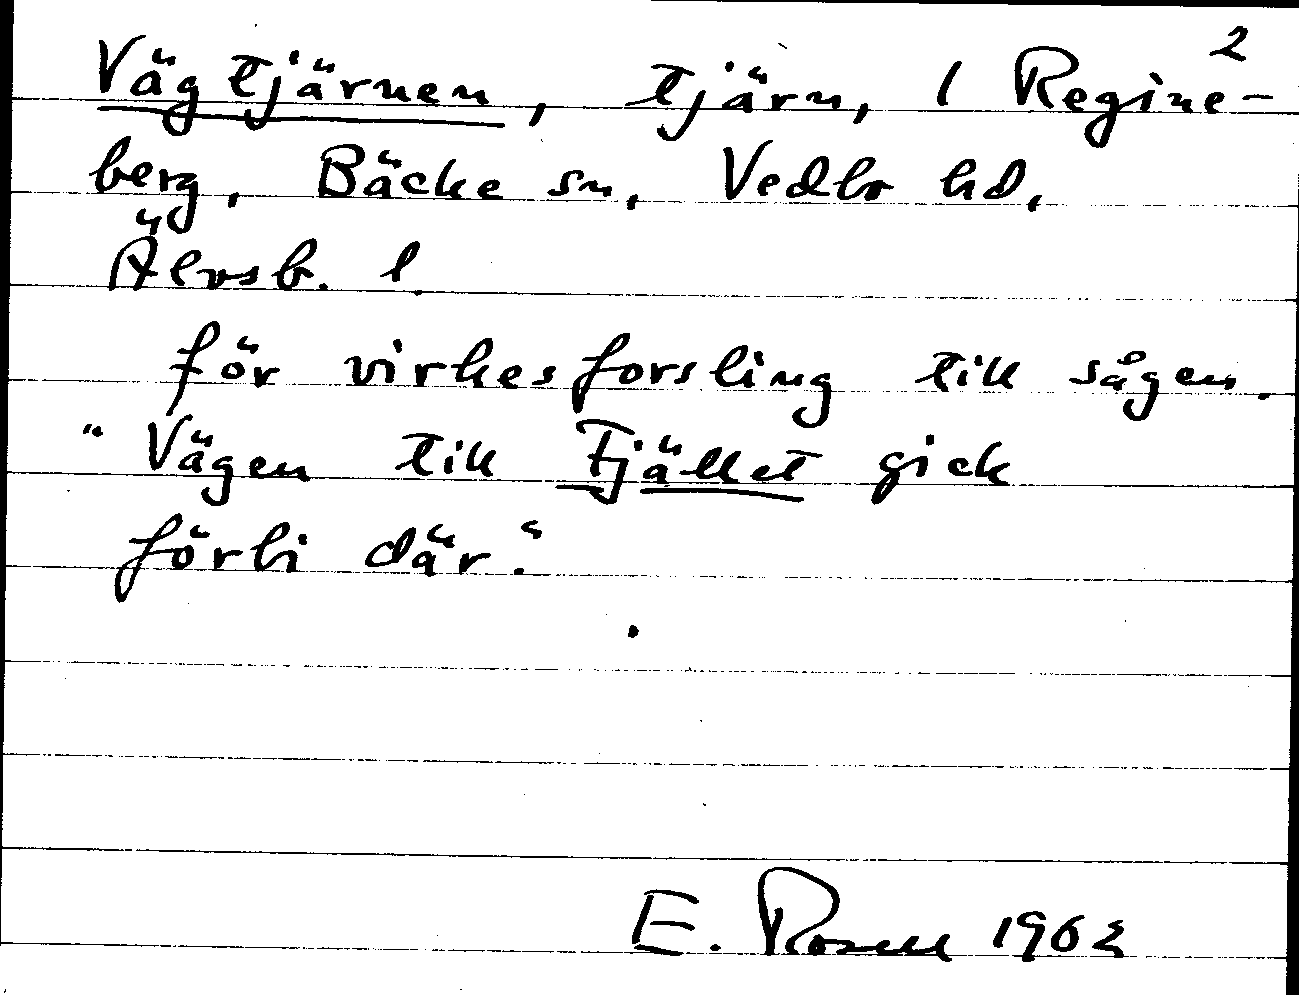 2
Vägtjärnen, tjärn, 1 Regine-
berg, Bäcke sn, Vedbo hd,
Älvsb. l.
för virkesforsling till sågen.
"Vägen till Fjället gick
förbi där."
E. Rosell 1962